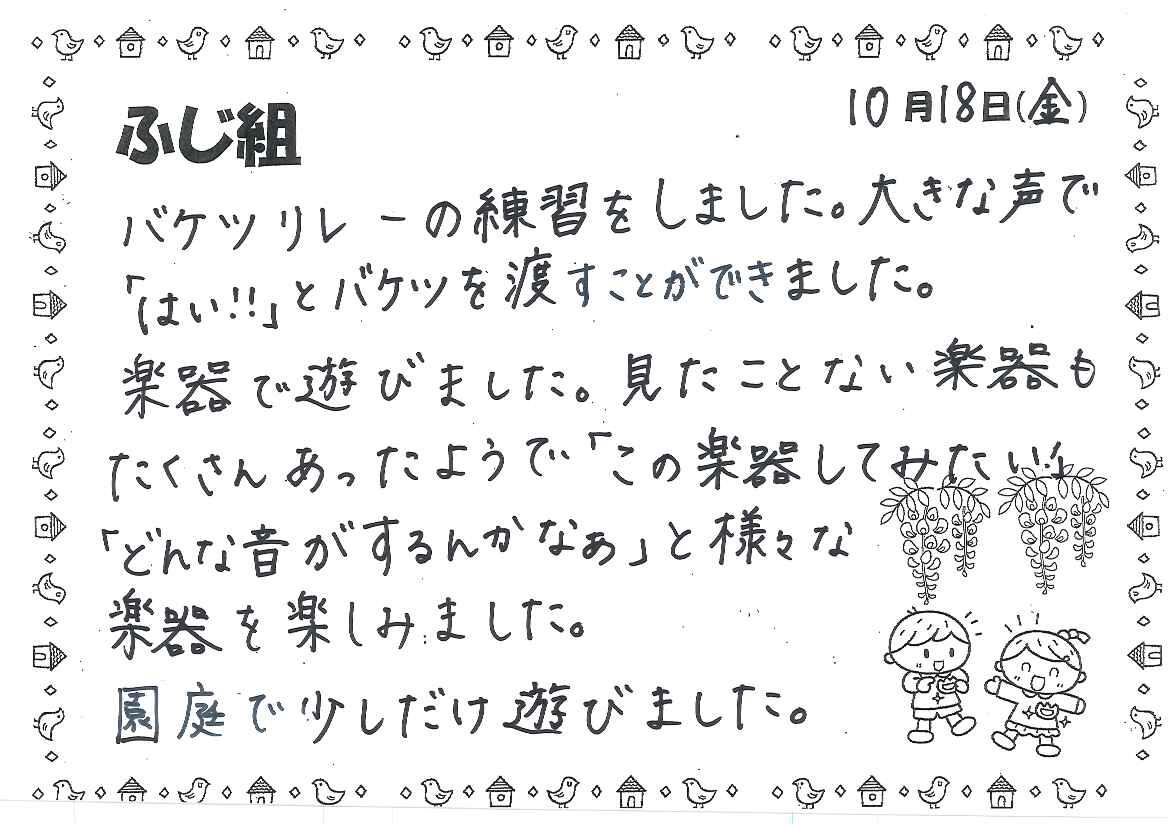 ふじ組
10月18日(金)
バケツリレーの練習をしました。大きな声で
「はい!!」とバケツを渡すことができました。
楽器で遊びました。見たことない楽器も
たくさんあったようで「この楽器してみたい!」
「どんな音がするんかなぁ」と様々な
楽器を楽しみました。
園庭で少しだけ遊びました。